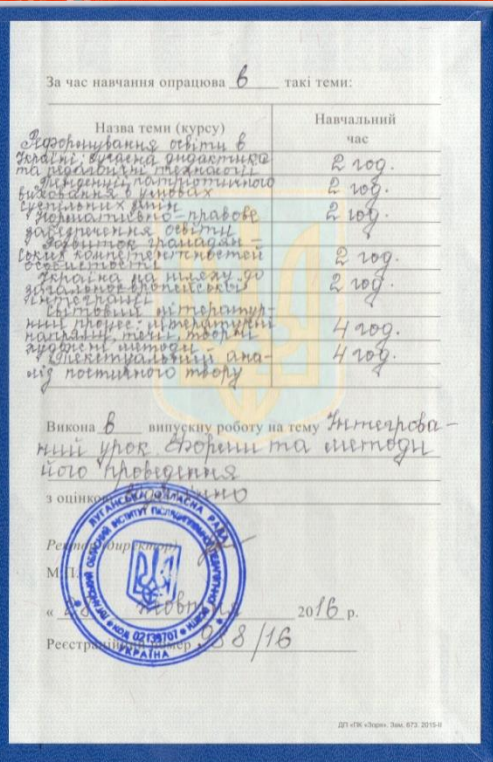 За час навчання опрацюва в такі теми:
Назва теми (курсу)
Навчальний
час
Реформування освіти в
Україні: сучасна дидактика
та педагогічні технології
2 год.
Тенденції патріотичного
виховання в умовах
суспільних змін
2 год.
Нормативно-правове
забезпечення освіти
2 год.
Розвиток громадян-
ських компетентностей
особистості
2 год.
Україна на шляху до
загальноєвропейської
інтеграції
2 год.
Світовий літератур-
ний процес: літературні
напрями, течії, творчі
художні методи
4 год.
Текстуальний ана-
ліз поетичного твору
4 год.
Викона в випускну роботу на тему Інтегрова-
ний урок. Форми та методи
його проведення
з оцінкою відмінно
Ректор (директор)
М.П.
« 28 » жовтня 2016 р.
Реєстраційний номер 958/16
ЛУГАНСЬКА ОБЛАСНА РАДА
ЛУГАНСЬКИЙ ОБЛАСНИЙ ІНСТИТУТ ПІСЛЯДИПЛОМНОЇ ПЕДАГОГІЧНОЇ ОСВІТИ
КОД 02135707
УКРАЇНА
ДП «ПК «Зоря». Зам. 673. 2015-ІІ